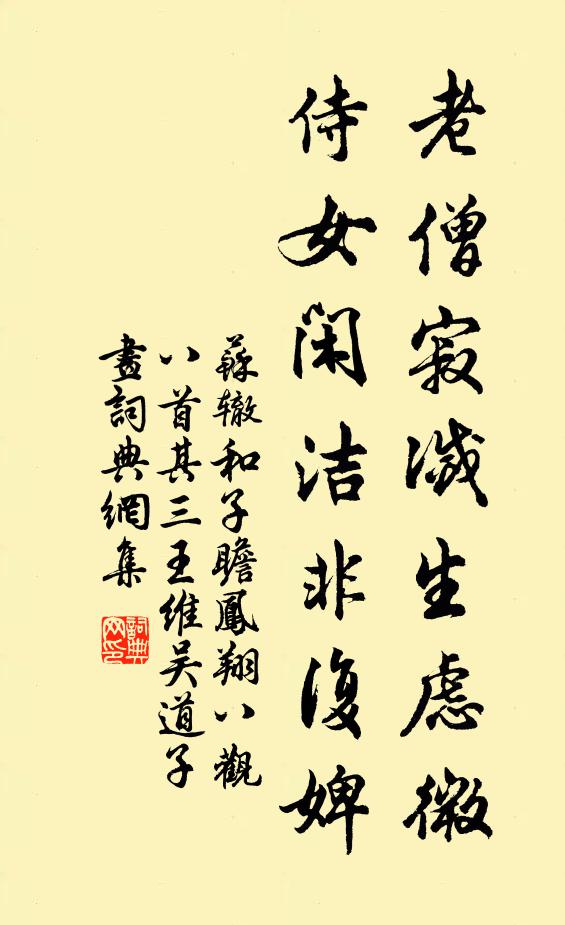 老僧寂滅生慮微
侍女閑洁非復婢
蘇轍和子瞻鳳翔八觀
八首其三王維吳道子
畫詞典網集
詞典
网印